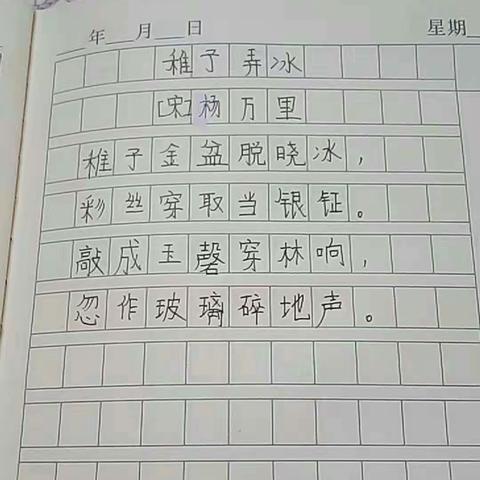 年 月 日 星期
稚子弄冰
[宋]杨万里
稚子金盆脱晓冰，
彩丝穿取当银钲。
敲成玉磬穿林响，
忽作玻璃碎地声。